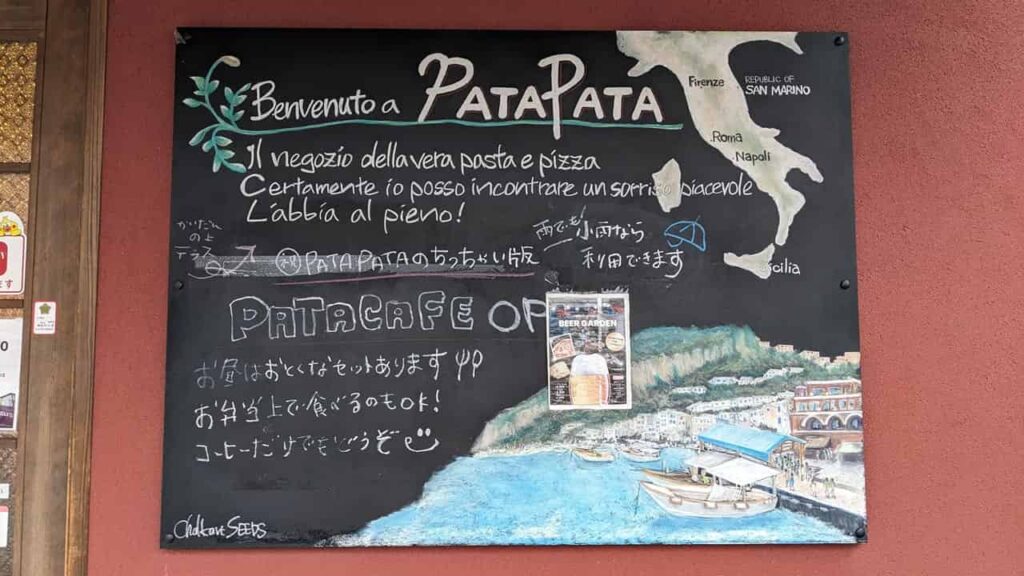 Benvenuto a PATAPATA
Il negozio della vera pasta e pizza
Certamente io posso incontrare un sorriso piacevole
L'abbia al pieno!
Firenze
REPUBLIC OF
SAN MARINO
Roma
Napoli
Sicilia
かいだん
の上
テラス
PATAPATAのちっちゃい版
雨でも小雨なら
利用できます
PATACAFE OP
BEER GARDEN
お昼はおとくなセットあります
お弁当上で食べるのもOK!
コーヒーだけでもどうぞ
Chalkart SEEDS